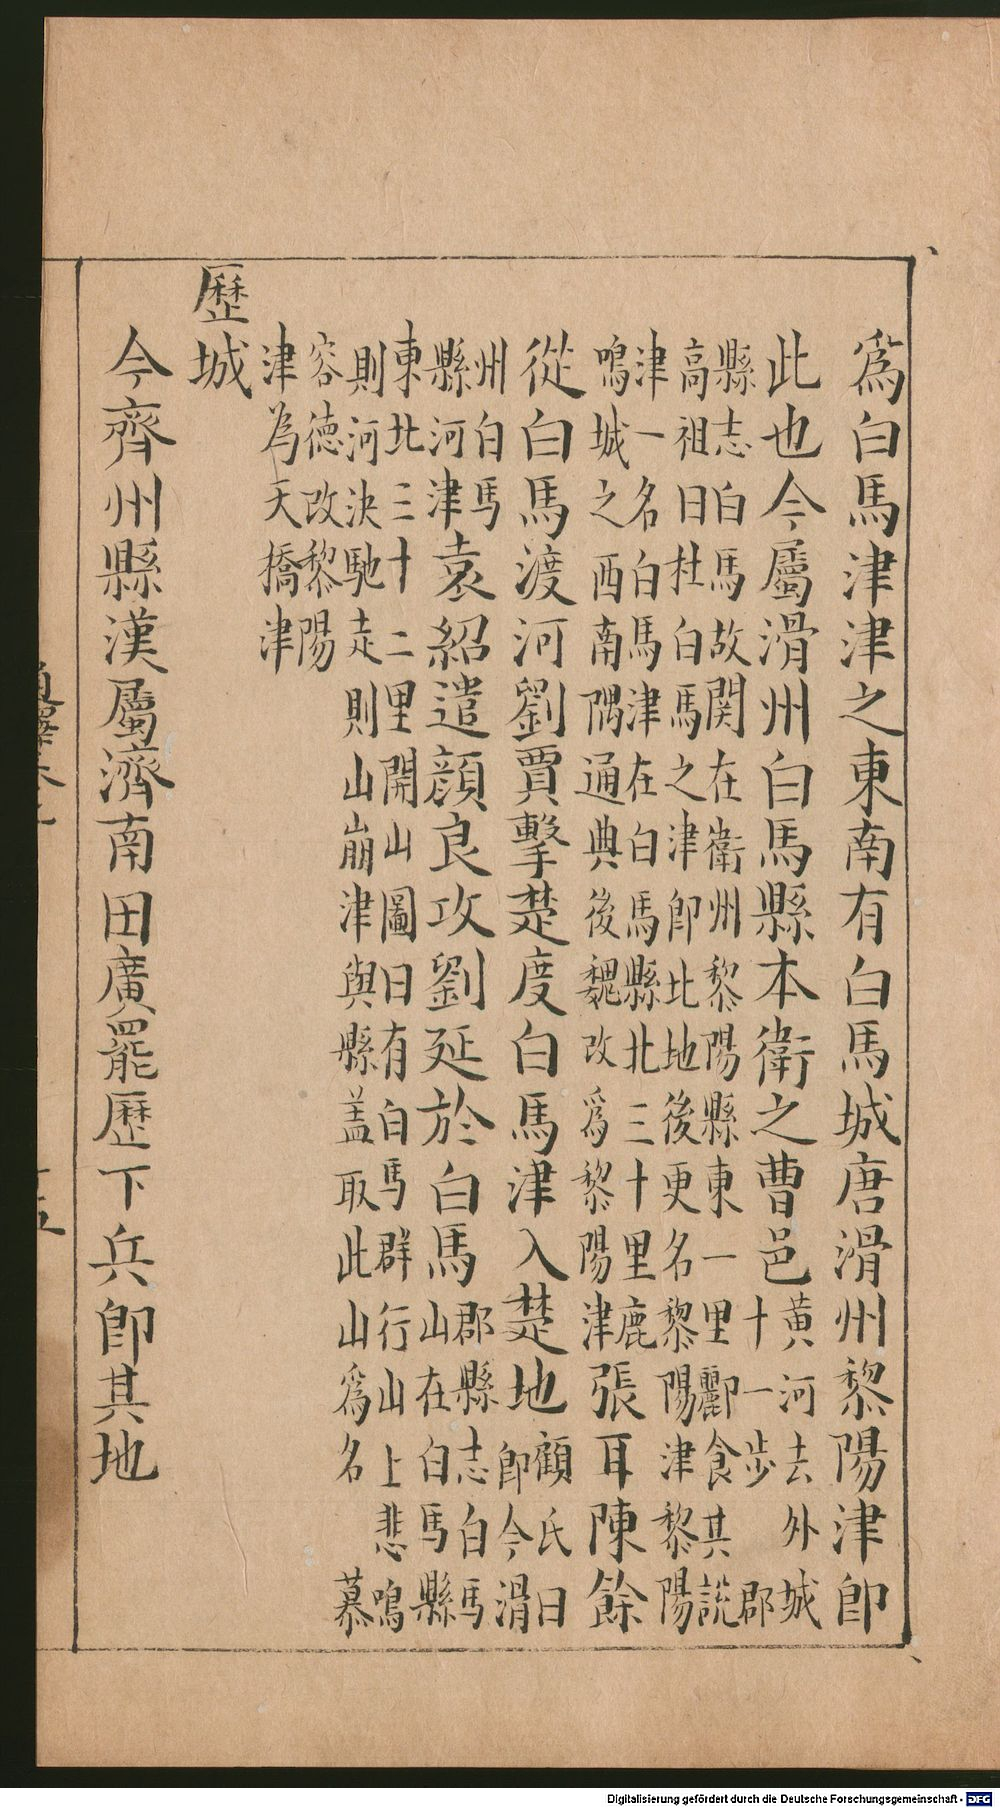 為白馬津津之東南有白馬城唐滑州黎陽津即
此也今屬滑州白馬縣本衛之曹邑黃河去外城
十一步郡
縣志白馬故関在衛州黎陽縣東一里酈食其說
高祖曰杜白馬之津即此地後更名黎陽津黎陽
津一名白馬津在白馬縣北三十里鹿
鳴城之西南隅通典後魏改為黎陽津張耳陳餘
從白馬渡河劉賈擊楚度白馬津入楚地顧氏曰
即今滑
州白馬
縣河津袁紹遣顔良攻劉延於白馬郡縣志白馬
山在白馬縣
東北三十二里開山圖曰有白馬群行山上悲鳴
則河決馳走則山崩津與縣盖取此山為名慕
容德改黎陽
津為天橋津
歷城
今齊州縣漢屬濟南田廣罷歷下兵即其地
Digitalisierung gefördert durch die Deutsche Forschungsgemeinschaft - DFG